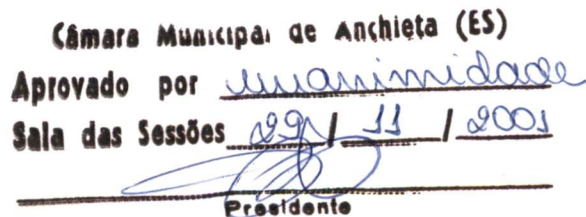 Câmara Municipal de Anchieta (ES)
Aprovado por unanimidade
Sala das Sessões 29 / 11 / 2001
Presidente